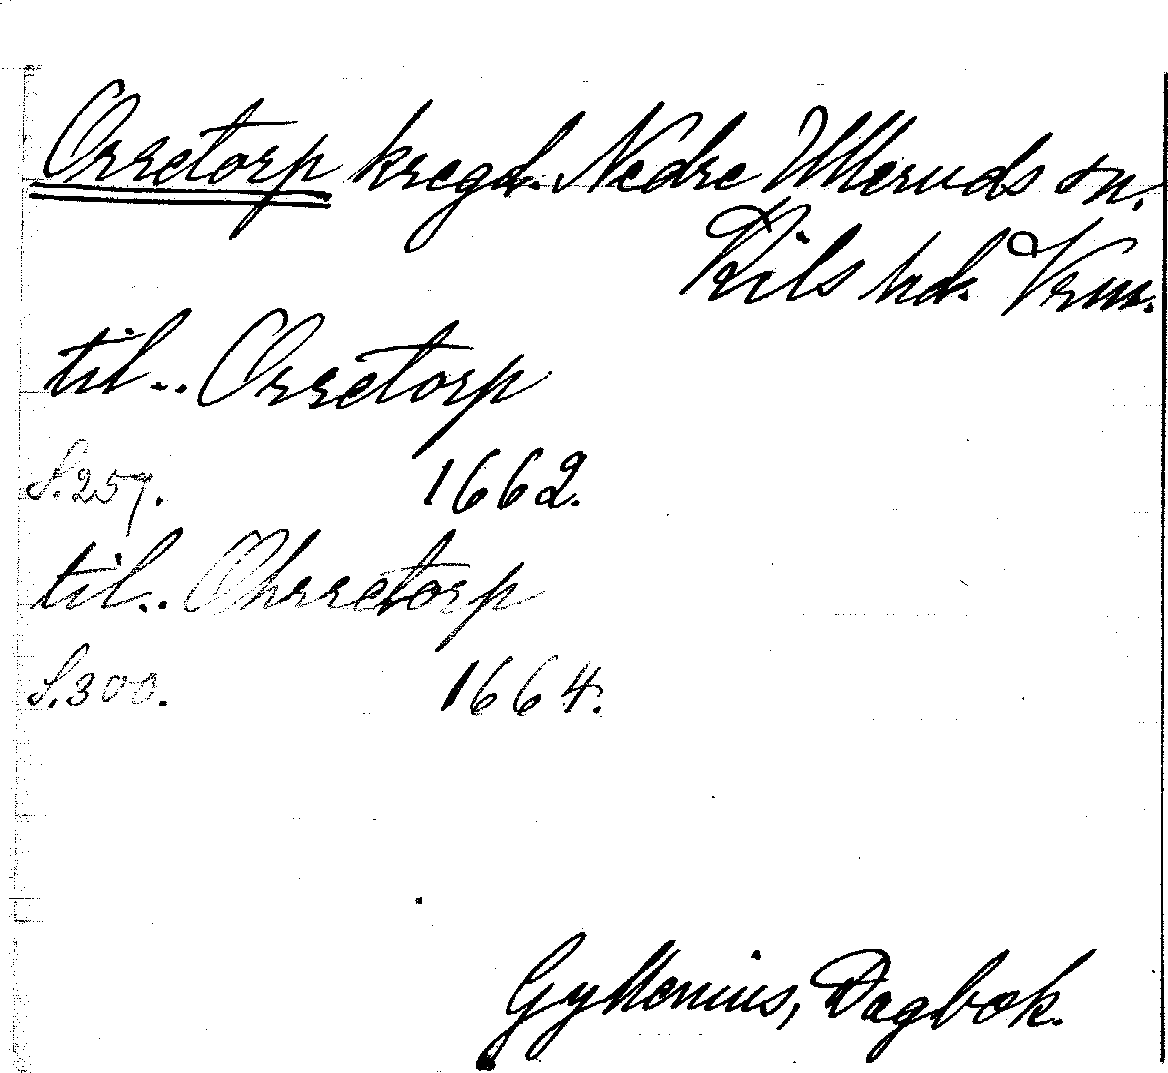 Orretorp kregd. Nedre Ulleruds sn.
Kils hd. Vrm.
til.. Orretorp
S.257. 1662.
til.. Ohrretorp
S.300. 1664.
Gyllenius, Dagbok.